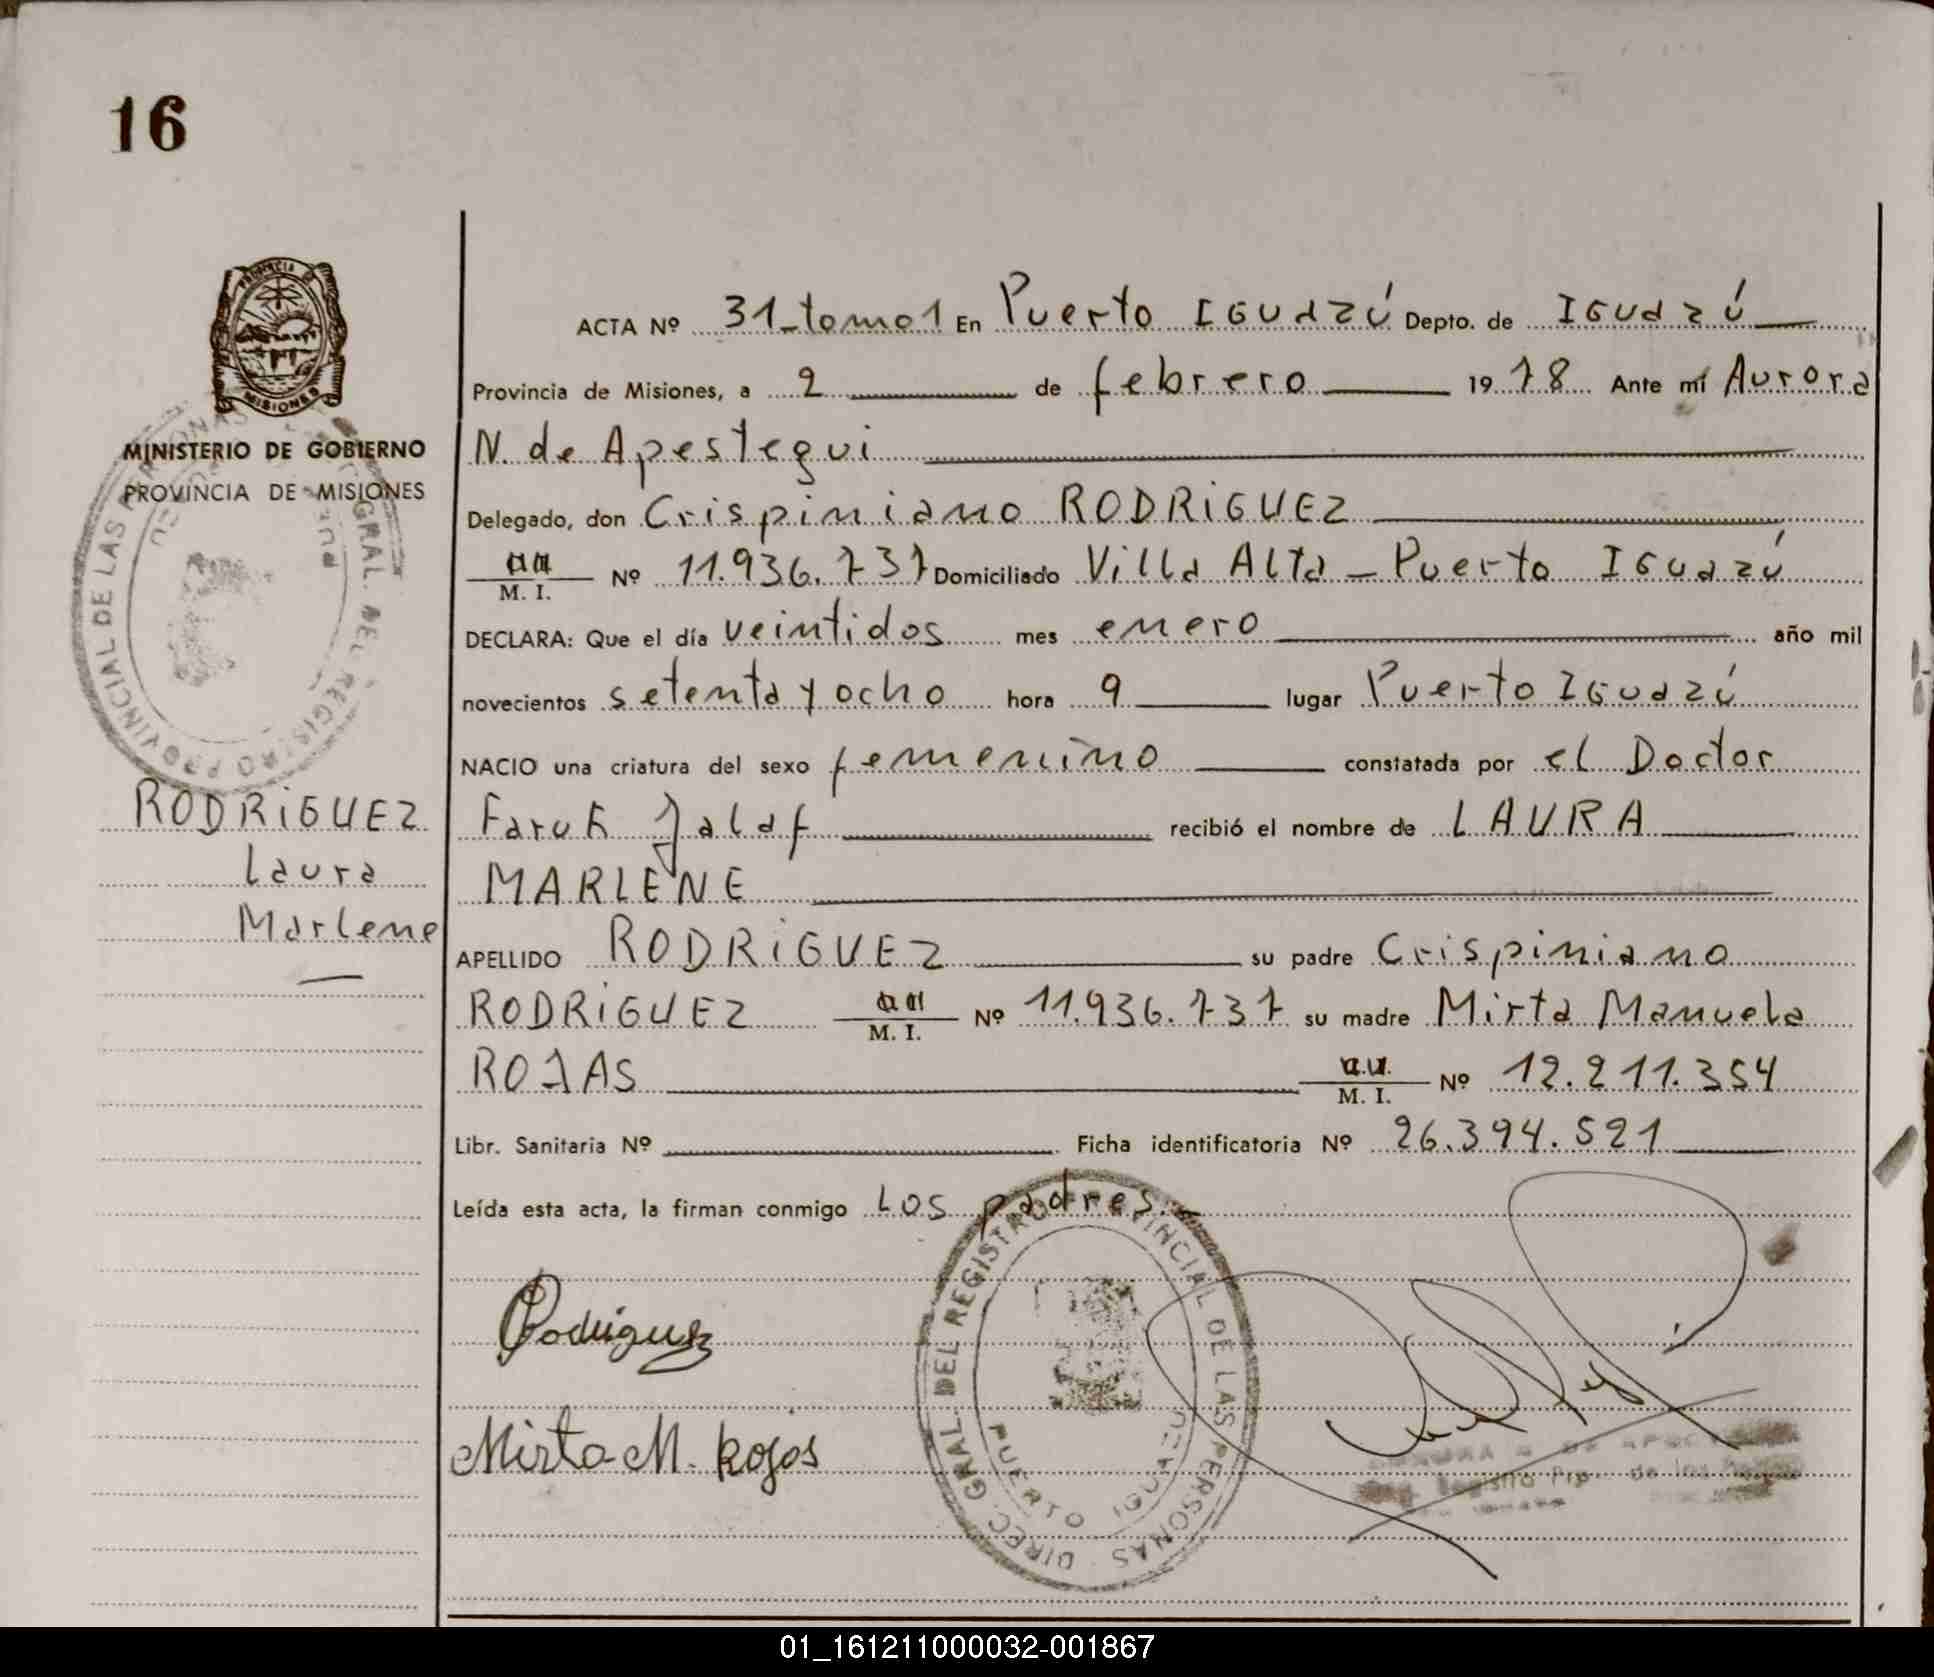 16
PROVINCIA DE
MISIONES
MINISTERIO DE GOBIERNO
PROVINCIA DE MISIONES
DIREC. GRAL. DEL REGISTRO PROVINCIAL DE LAS PERSONAS
RODRIGUEZ
Laura
Marlene
ACTA Nº 31_tomo1 En Puerto IGUAZÚ Depto. de IGUAZÚ
Provincia de Misiones, a 2 de febrero 1978 Ante mí Aurora
N. de Apestegui
Delegado, don Crispiniano RODRIGUEZ
M. I. Nº 11.936.737 Domiciliado Villa Alta - Puerto IGUAZÚ
DECLARA: Que el día veintidos mes enero año mil
novecientos setenta y ocho hora 9 lugar Puerto IGUAZÚ
NACIO una criatura del sexo femenino constatada por el Doctor
Faruk Jalaf recibió el nombre de LAURA
MARLENE
APELLIDO RODRIGUEZ su padre Crispiniano
RODRIGUEZ M. I. Nº 11.936.737 su madre Mirta Manuela
ROJAS M. I. Nº 12.211.354
Libr. Sanitaria Nº Ficha identificatoria Nº 26.394.521
Leída esta acta, la firman conmigo Los padres.-
Rodriguez
Mirta M. Rojas
DIREC. GRAL. DEL REGISTRO PROVINCIAL DE LAS PERSONAS
PUERTO IGUAZU
01_161211000032-001867